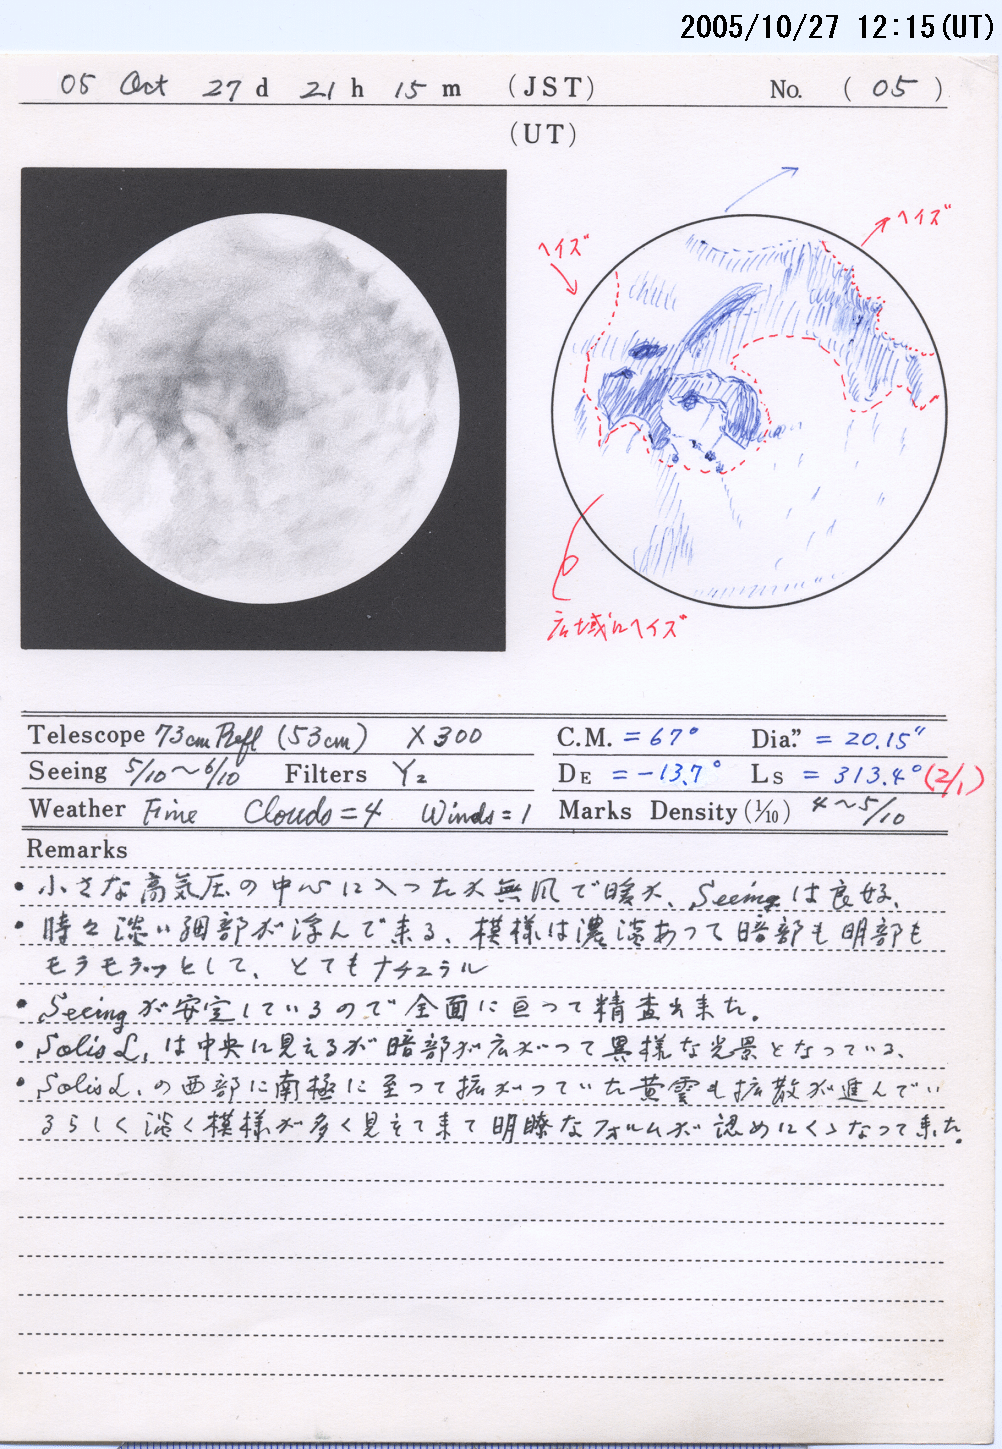 2005/10/27 12:15(UT)
05 Oct 27 d 21 h 15 m (JST) No. (05)
(UT)
ヘイズ
ヘイズ
広域にヘイズ
Telescope 73cm Refl (53cm) X300
Seeing 5/10~6/10 Filters Y2
Weather Fine Clouds=4 Winds=1
C.M. =67° Dia." =20.15"
DE =-13.7° LS =313.4°(2/1)
Marks Density(1/10) 4~5/10
Remarks
・小さな高気圧の中心に入ったか無風で暖か、Seeingは良好、
・時々淡い細部が浮んで来る、模様は濃淡あって暗部も明部も
モヤモヤッとして、とてもナチュラル
・Seeingが安定しているので全面に亘って精査出来た。
・Solis L,は中央に見えるが暗部が広がって異様な光景となっている、
・Solis L,の西部に南極に至って拡がっていた黄雲も拡散が進んでい
るらしく淡く模様が多く見えて来て明瞭なフォルムが認めにくくなって来た。